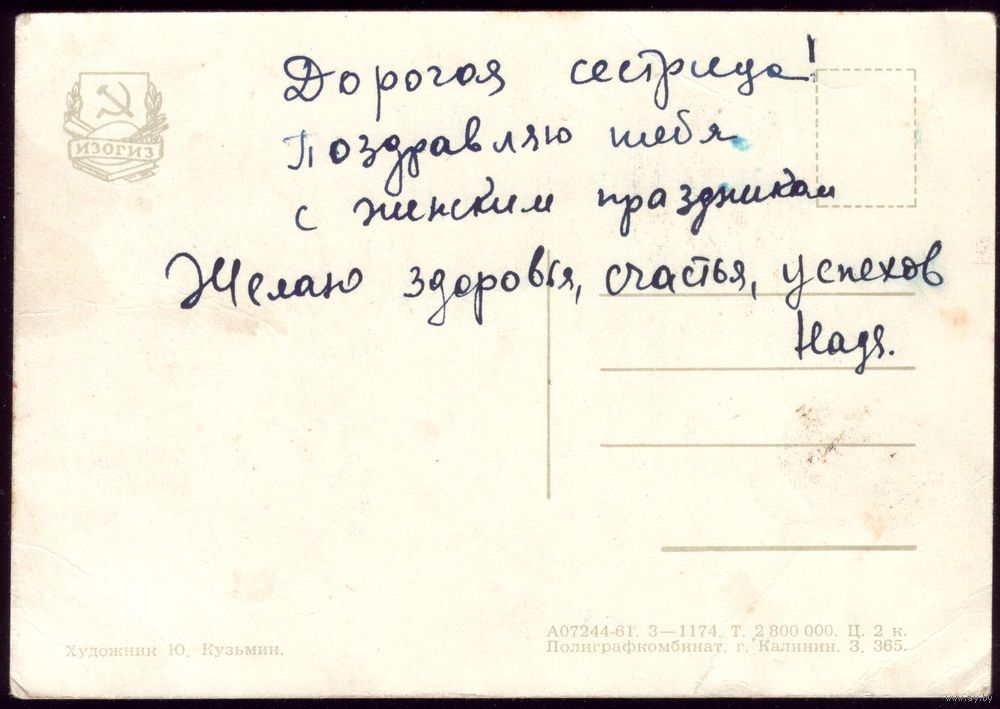 Дорогая сестрица!
Поздравляю тебя
с женским праздником
Желаю здоровья, счастья, успехов
Надя.
ИЗОГИЗ
Художник Ю. Кузьмин.
А07244-61. 3—1174. Т. 2 800 000. Ц. 2 к.
Полиграфкомбинат, г. Калинин. З. 365.
www.ay.by